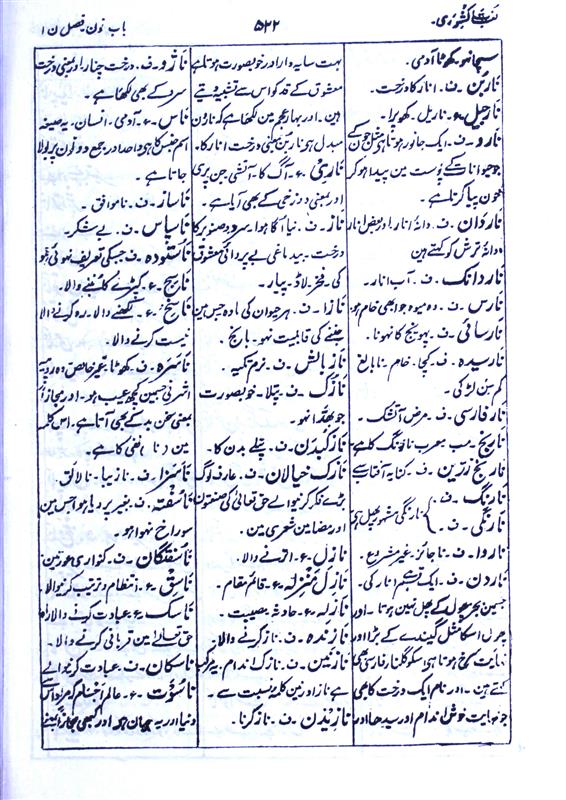 لغات کشوری۔ ۵۲۲ باب نون فصل ن ا
سچا نہو۔ کھوٹا آدمی۔
ناربُن۔ ف۔ انار کا درخت۔
نارجیل۔ ع۔ ناریل۔ کھوپرا۔
نارو۔ ف۔ ایک جانور ہوتا ہے
جو حیوانات کے پوست میں پیدا ہو کر
خون پیا کرتا ہے۔
ناردان۔ ف۔ دانۂ انار اور بعض انار
دانۂ ترش کو کہتے ہیں
ناردانگ۔ ف۔ آب انار۔
نارس۔ ف۔ وہ میوہ جو ابھی خام ہو
نارسائی۔ ف۔ پہونچ کا نہونا۔
نارسیدہ۔ ف۔ کچا۔ خام۔ نابالغ
کم سن لڑکی۔
نار فارسی۔ ف۔ مرض آتشک۔
نارنج۔ معرب نارنگ کا ہے
نارنج زرین۔ ف۔ کنایہ آفتاب سے
نارنگ۔ ف۔
نارنگی۔ ف۔ نارنگی مشہور پھل ہے
ناروا۔ ف۔ ناجائز۔ غیر مشروع۔
ناردن۔ ف۔ ایک قسم انار کی۔
جسمین بجز پھول کے پھل نہین ہوتا۔ اور
پھول اسکا مثل گیندے کے بڑا اور
نہایت سرخ ہوتا ہے اسکو گلنار فارسی بھی
کہتے ہین۔ اور نام ایک درخت کا بھی
جو نہایت خوش اندام اور سیدھا اور
بہت سایہ دار اور خوبصورت ہوتا ہے
معشوق کے قد کو اس سے تشبیہ دیتے
ہین۔ اور بہار عجم مین لکھا ہے کہ نارون
مبدل ہو ناربن کا یعنی درخت انار کا۔
ناری۔ ع۔ آگ کا۔ آتشی جن پری
اور بمعنی دوزخی کے بھی آیا ہے۔
ناز۔ ف۔ نیا اگا ہوا۔ سرو و صنوبر کا
درخت۔ بیدماغی بے پروائی معشوق
کی۔ فخر۔ لاڈ۔ پیار۔
نازا۔ ف۔ ہر حیوان کی مادہ جس مین
جننے کی قابلیت نہو۔ بانجھ۔
ناز بالش۔ ف۔ نرم تکیہ۔
نازک۔ ف۔ پتلا۔ خوبصورت
جو بھدا نہو۔
نازک بدن۔ ف۔ پتلے بدن کا۔
نازک خیالان۔ ف۔ عارف لوگ
بڑے فکر کرنیوالے حق تعالیٰ کی صنعتون
اور مضامین شعری مین۔
نازل۔ ع۔ اترنے والا۔
نازل منزلہ۔ ع۔ قائم مقام۔
نازلہ۔ ع۔ حادثہ۔ مصیبت۔
نازندہ۔ ف۔ ناز کرنے والا۔
نازنین۔ ف۔ نازک اندام۔ یہ مرکب
ہے ناز اور نین کلمۂ نسبت سے۔
نازیدن۔ ف۔ ناز کرنا۔
ناژو۔ ف۔ درخت چنار اور بمعنی درخت
سرو کے بھی لکھا ہے۔
ناس۔ ع۔ آدمی۔ انسان۔ یہ صیغہ
اسم جنس کا ہے واحد اور جمع دونون پر بولا
جاتا ہے۔
ناساز۔ ف۔ ناموافق۔
ناسپاس۔ ف۔ بے شکر۔
ناستودہ۔ ف۔ جسکی تعریف نہوئی ہو
ناسج۔ ع۔ کپڑے کا بُننے والا۔
ناسخ۔ ع۔ لکھنے والا۔ رد کرنے والا
نیست کرنے والا۔
ناسرہ۔ ف۔ کھوٹا۔ غیر خالص وہ روپیہ
اشرفی جسمین کچھ عیب ہو۔ اور مجازاً
بمعنی سخن بد کے بھی آتا ہے۔ اس کلمہ
مین نا نفی کا ہے۔
ناسزا۔ ف۔ نازیبا۔ نالائق۔
ناسفتہ۔ ف۔ بغیر پرویا ہوا جس مین
سوراخ نہوا ہو۔
ناسفتگان۔ ف۔ کنواری عورتین
ناسق۔ ع۔ انتظام و ترتیب کرنیوالا۔
ناسک۔ ع۔ عبادت کرنے والا راہ
حق تعالیٰ مین قربانی کرنے والا۔
ناسکان۔ ف۔ عبادت کرنیوالے
ناسوت۔ ع۔ عالم اجسام کہ مراد اس سے
دنیا اور یہ جہان ہے اور کبھی مجازاً بمعنی